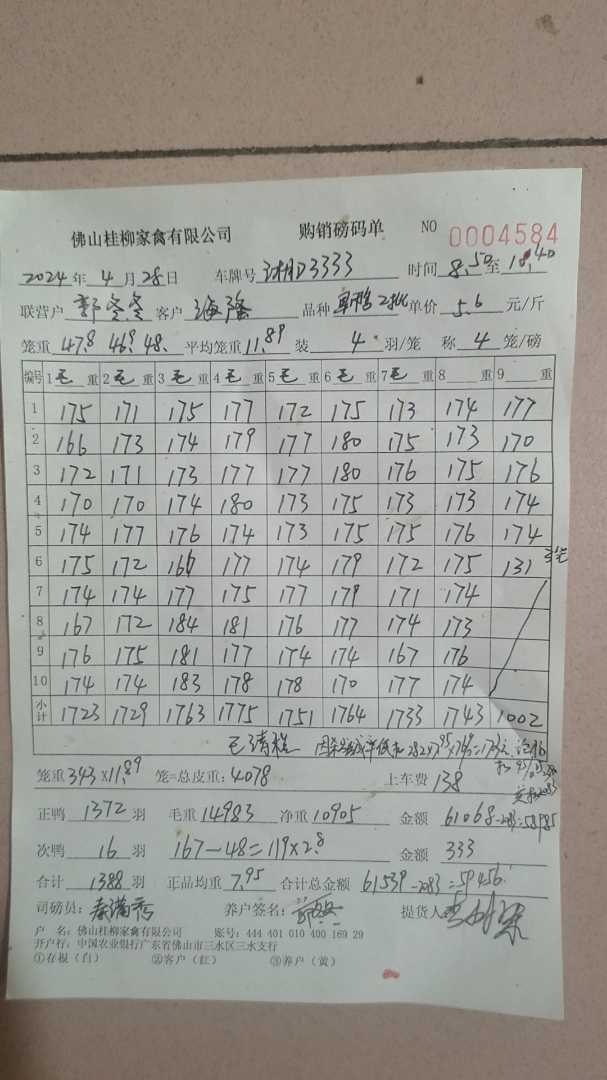 佛山桂柳家禽有限公司 购销磅码单 NO 0004584
2024年 4月 28日 车牌号 D3333 时间 8.50至18.40
联营户 客户 海隆 品种 单价 5.6 元/斤
笼重 47.8 46.9 48. 平均笼重 11.89 装 4 羽/笼 称 4 笼/磅
编号 1毛重 2毛重 3毛重 4毛重 5毛重 6毛重 7毛重 8 重 9 重
1 175 171 175 177 172 175 173 174 177
2 166 173 174 179 177 180 175 173 170
3 172 171 173 177 177 180 176 175 176
4 170 170 174 180 173 175 173 173 174
5 174 177 176 174 173 175 175 176 174
6 175 172 167 177 174 179 172 175 131 3笼
7 174 174 177 175 177 179 171 174
8 167 172 184 181 176 177 174 173
9 176 175 181 177 174 174 167 176
10 174 174 183 178 178 170 177 174
小计 1723 1729 1763 1775 1751 1764 1733 1743 1002
已清棚
笼重 343×11.89 笼=总皮重:4078 上车费 138
正鸭 1372 羽 毛重 14983 净重 10905 金额 61068-2083=58985
次鸭 16 羽 167-48=119×2.8 金额 333
合计 1388 羽 正品均重 7.95 合计总金额 61539-2083=59456
司磅员: 秦满秀 养户签名: 提货人:
户 名:佛山桂柳家禽有限公司 账号:444 401 010 400 169 29
开户行:中国农业银行广东省佛山市三水区三水支行
①存根(白) ②客户(红) ③养户(黄)